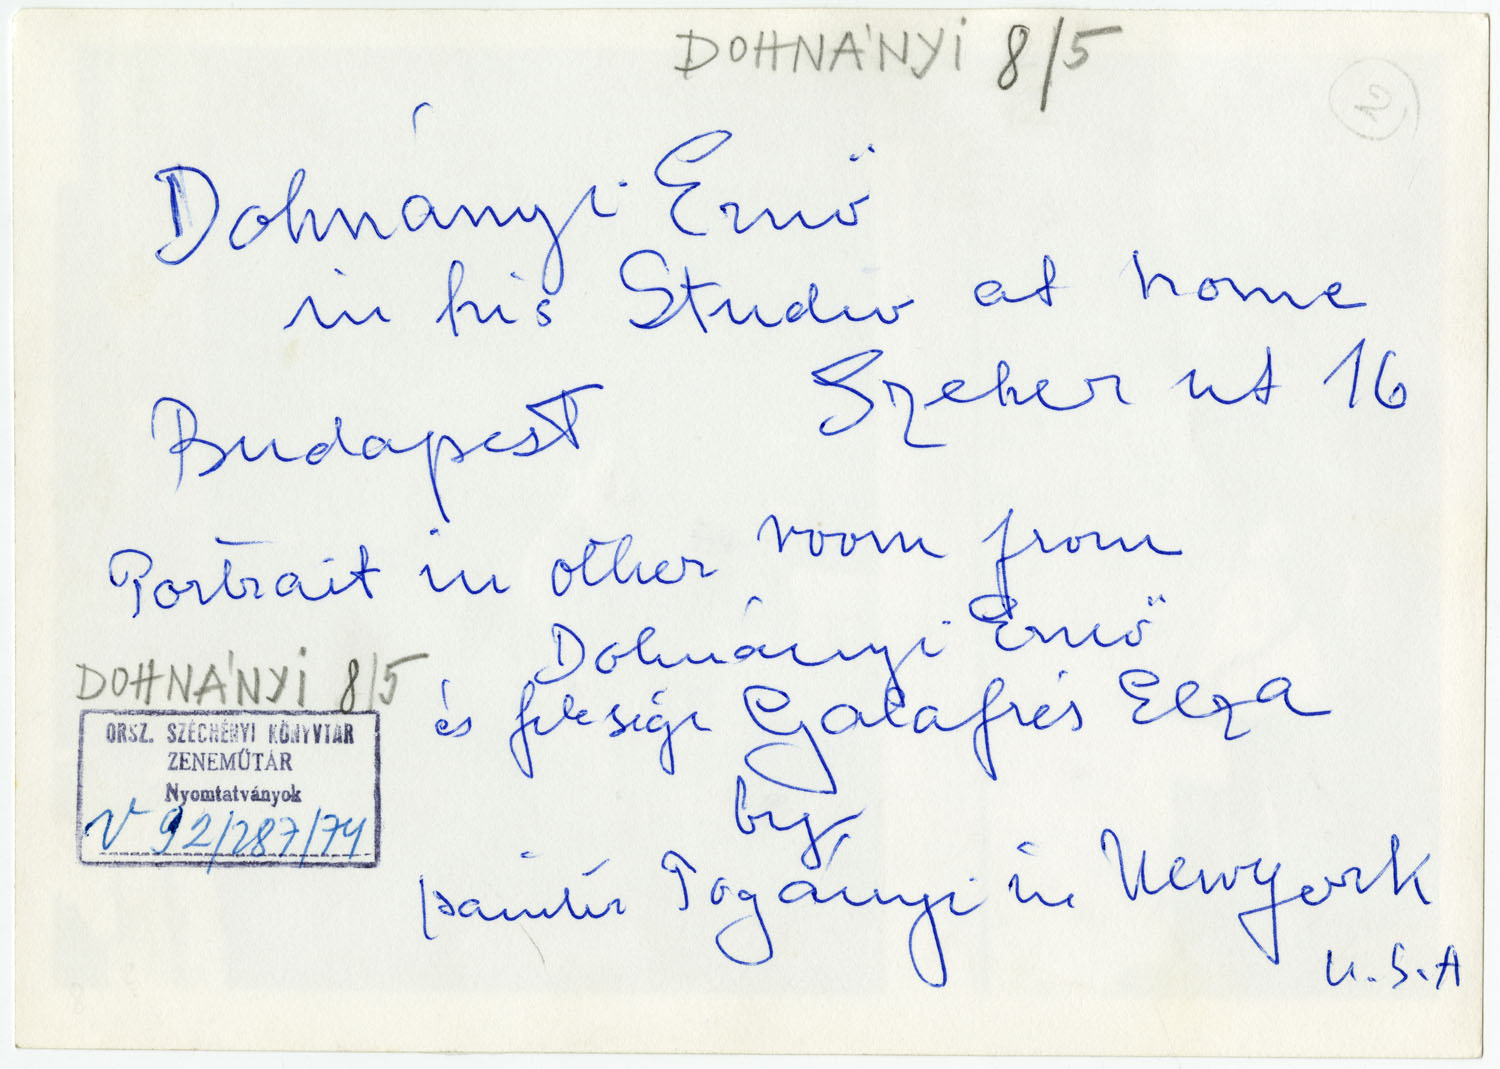 DOHNÁNYI 8/5
2
Dohnányi Ernő
in his Studio at home
Szeher ut 16
Budapest
Portrait in other room from
Dohnányi Ernő
és felesége Galafrés Elza
by
painter Pogányi in Newyork
U.S.A
DOHNÁNYI 8/5
ORSZ. SZÉCHÉNYI KÖNYVTÁR
ZENEMŰTÁR
Nyomtatványok
V 92/287/74